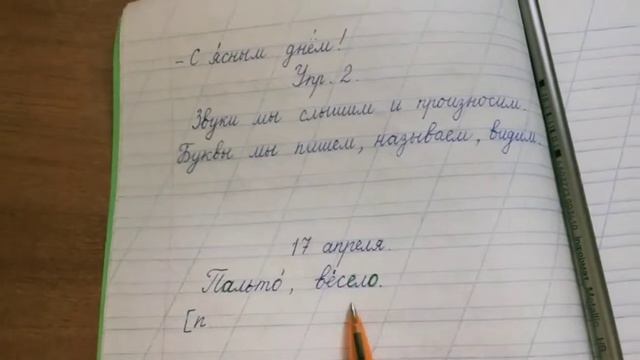 - С я́сным днём!
Упр. 2.
Звуки мы слышим и произносим.
Буквы мы пишем, называем, видим.
17 апреля.
Пальто́, ве́село.
[п